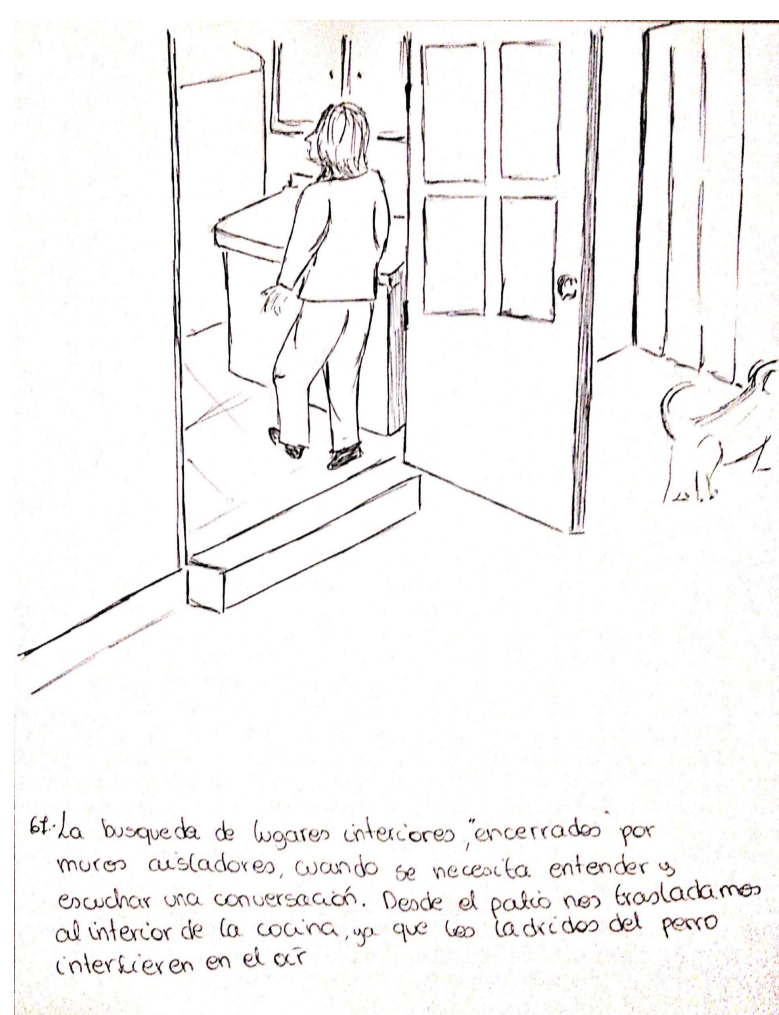 61. La busqueda de lugares interiores, "encerrados" por
muros aisladores, cuando se necesita entender y
escuchar una conversación. Desde el patio nos trasladamos
al interior de la cocina, ya que los ladridos del perro
interfieren en el oír